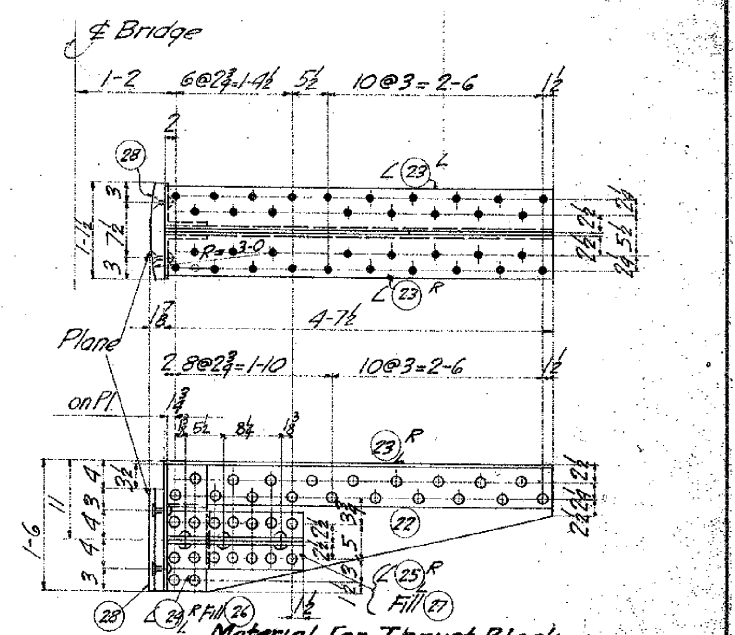 ℄ Bridge
1-2 6@2¾=1-4½ 5½ 10@3=2-6 1½
2
28
L 23 L
3
1-1½ 7½
3
2¼
2½
2½ 5½
2¼
R=3-0
L 23 R
1⅞ 4-7½
Plane
2 8@2¾=1-10 10@3=2-6 1½
on Pl.
1¾
5½ 8¼ 1⅜
23 R
4 3½
11
3
4
1-6
4
3
2½
2¼
2½
22
3¾
2½
2½ 5
3
1½
L 25 R
Fill 27
28 L 24 R L Fill 26 1½
Material for Thrust Block